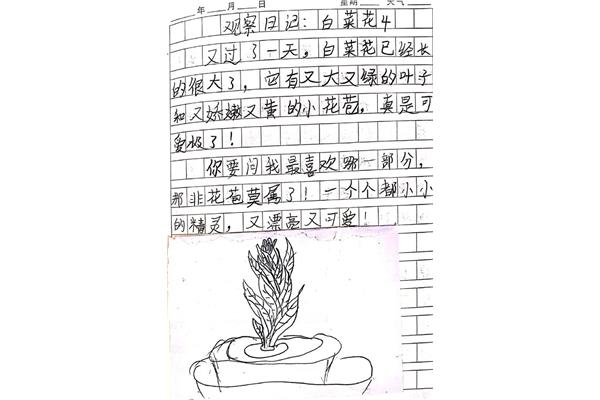 年 月 日 星期 天气
观察日记：白菜花4
又过了一天，白菜花已经长
的很大了，它有又大又绿的叶子
和又娇嫩又黄的小花苞，真是可
爱极了！
你要问我最喜欢哪一部分，
那非花苞莫属了！一个个都小小
的精灵，又漂亮又可爱！